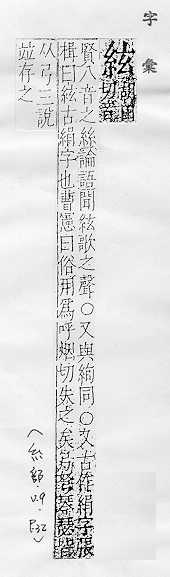 字彙
絃 胡田切音
賢八音之絲論語聞絃歌之聲〇又與絢同〇又古作絹字張
楫曰絃古絹字也曹憲曰俗用為呼烟切失之矣
从弓二說
並存之
(糸部.09.